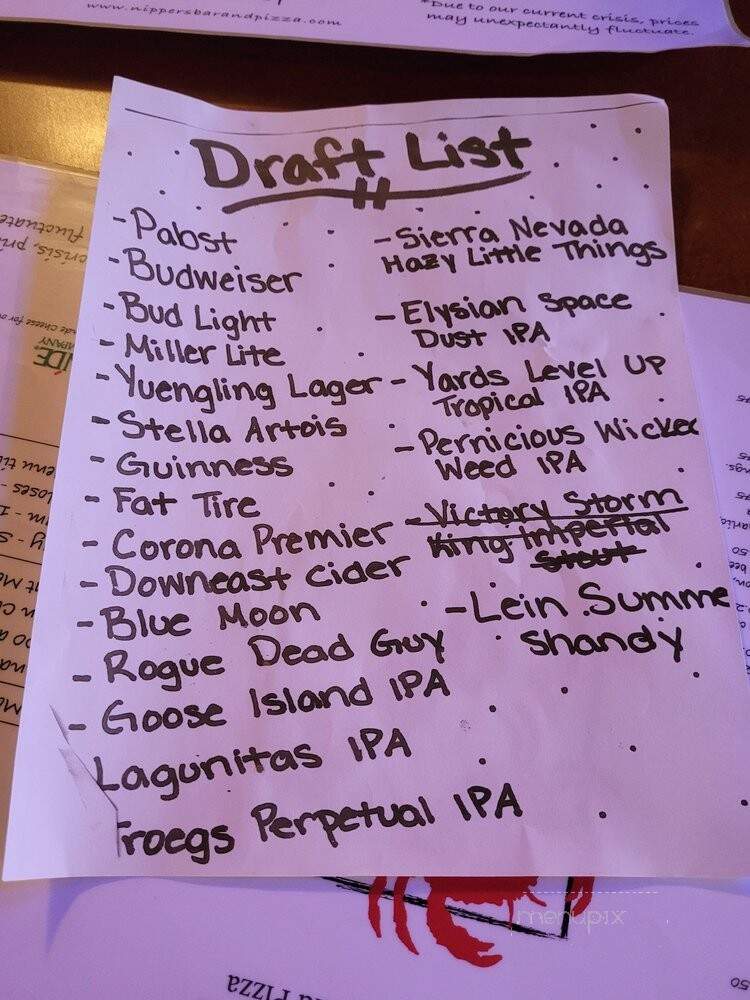 www.nippersbarandpizza.com
*Due to our current crisis, prices
may unexpectantly fluctuate.
Draft List
- Pabst
- Budweiser
- Bud Light
- Miller Lite
- Yuengling Lager
- Stella Artois
- Guinness
- Fat Tire
- Corona Premier
- Downeast Cider
- Blue Moon
- Rogue Dead Guy
- Goose Island IPA
Lagunitas IPA
Froegs Perpetual IPA
- Sierra Nevada
Hazy Little Things
- Elysian Space
Dust IPA
- Yards Level UP
Tropical IPA
- Pernicious Wicked
Weed IPA
- Victory Storm
King Imperial
Stout
- Lein Summe
Shandy
fluctuate
crisis, pri
menupix
Pizza